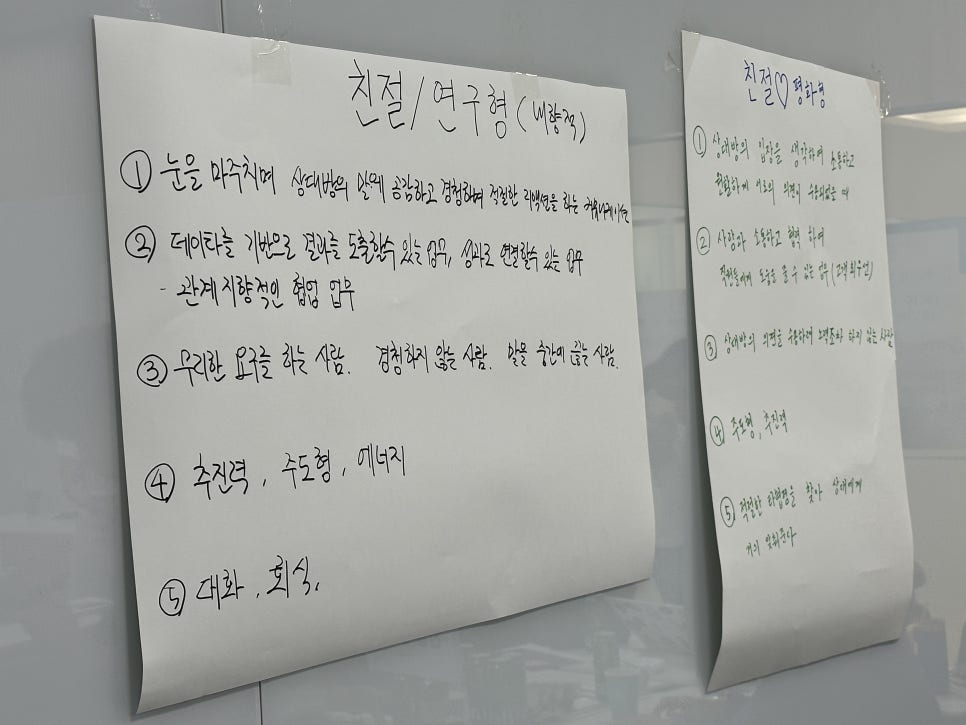 친절/연구형 (내향적)
① 눈을 마주치며 상대방의 말에 공감하고 경청하며 적절한 리액션을 하는 커뮤니케이션
② 데이타를 기반으로 결과를 도출할수 있는 업무, 성과로 연결할수 있는 업무
- 관계지향적인 협업 업무
③ 무리한 요구를 하는 사람. 경청하지 않는 사람. 말을 중간에 끊는 사람.
④ 추진력, 주도형, 에너지
⑤ 대화, 회식,
친절♡평화형
① 상대방의 입장을 생각하며 소통하고
원활하게 서로의 의견이 수용되었을 때
② 사람과 소통하고 협력 하며
직원들에게 도움을 줄 수 있는 업무(고객 최우선)
③ 상대방의 의견을 수용하려 노력조차 하지 않는 사람
④ 주도형, 추진력
⑤ 적절한 타협점을 찾아 상대에게
거의 맞춰준다